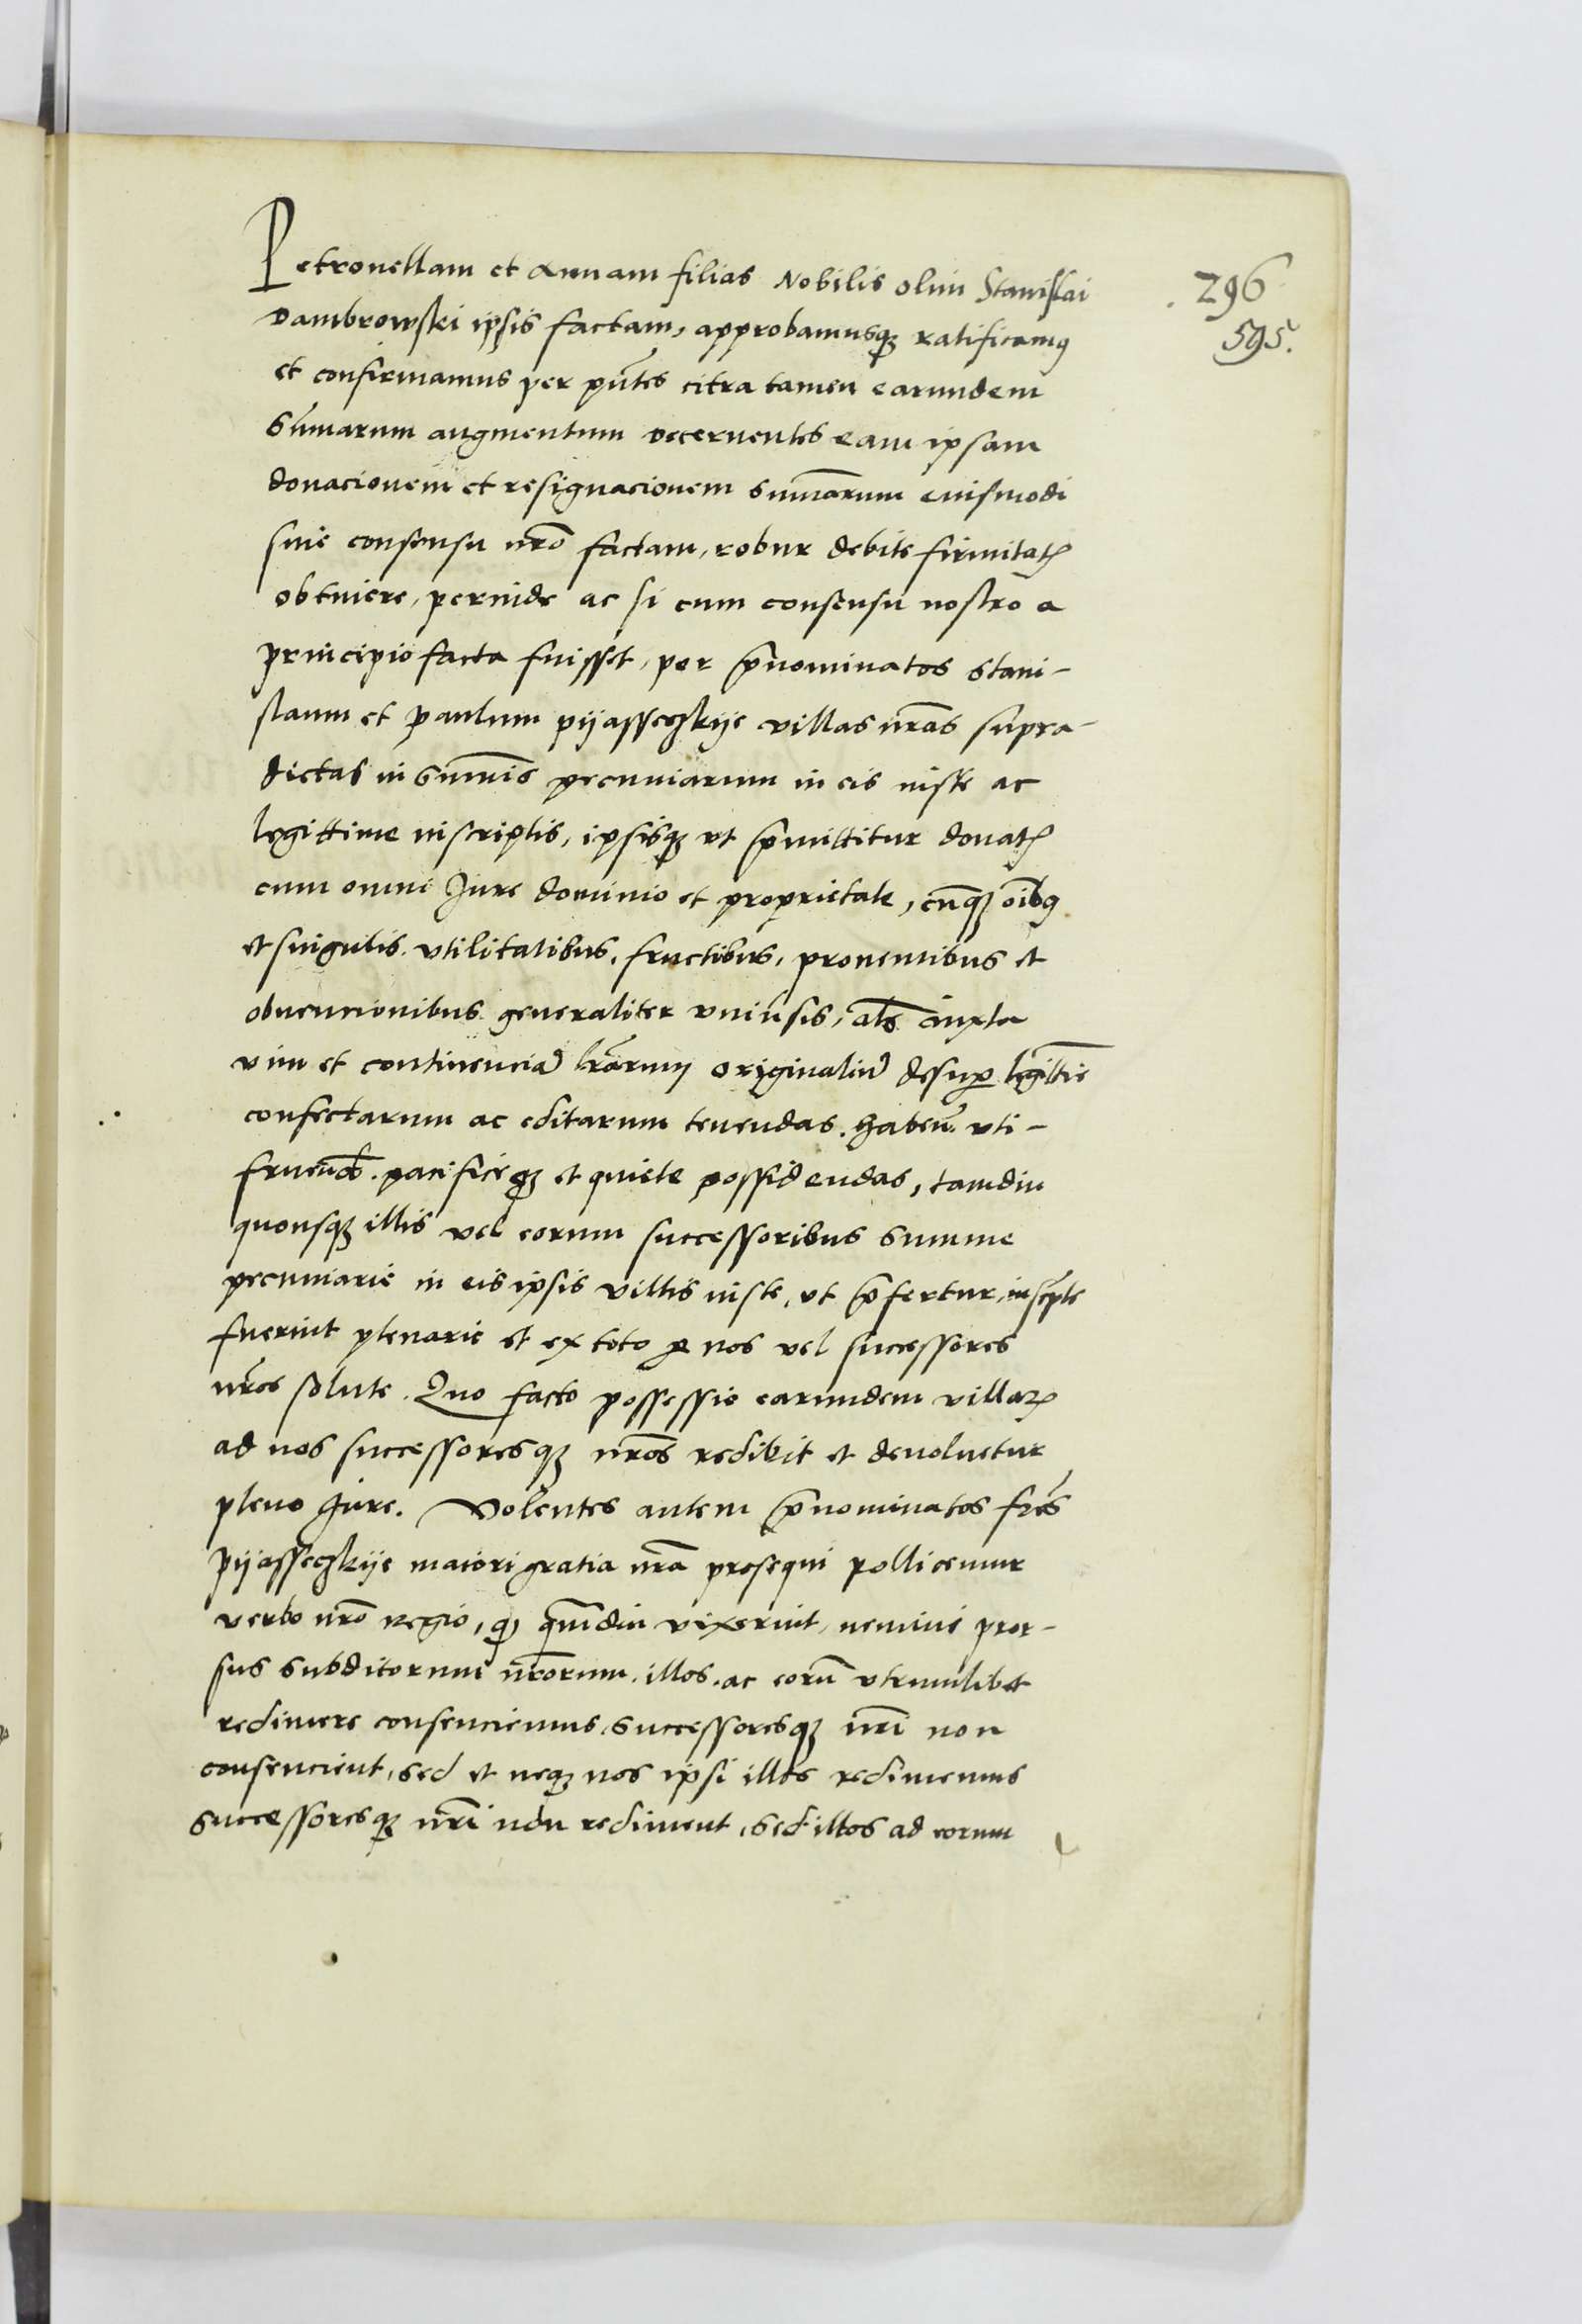 Petronellam et Annam filias Nobilis olim Stanislai
296
Dambrowski ipsis factam, approbamusq₃ ratificamꝰ
595.
et confirmamus per pn̄tes citra tamen earundem
Sūmarum augmentum decernentes eam ipsam
donacionem et resignacionem sum̄arum euismodi
sine consensu nr̄o factam, robur debite firmitatꝭ
obtinere, perinde ac si cum consensu nostro a
principio facta fuisset, per p̄nominatos Stani-
slaum et Paulum pijasseczkije villas nr̄as supra-
dictas in sum̄is pecuniarum in eis iuste ac
legittime inscriptis, ipsisq₃ vt p̄mittitur donatꝭ
cum omni Jure dominio et proprietate, cūq₃ oībꝰ
et singulis vtilitatibus, fructibus, prouentibus et
obuencionibus generaliter vniūsis, al̄s iuxta
vim et continenciā lr̄arum originaliū desuꝑ legittīe
confectarum ac editarum tenendas. haben̄. vti-
fruend̄. pacificeq₃ et quiete possidendas, tamdiu
quousq₃ illis vel eorum successoribus summe
pecuniarie in eis ipsis villis iuste, vt p̄fertur, inscr̄pte
fuerint plenarie et ex toto ꝑ nos vel successores
nr̄os solute. Quo facto possessio earundem villaꝝ
ad nos successoresq₃ nr̄os redibit et deuoluetur
pleno Jure. Volentes autem p̄nominatos fr̄es
pijasseczkije maiori gratia nr̄a prosequi pollicemur
verbo nr̄o Regio, ꝙ quādiu vixerint, nemini pror-
sus subditorum nr̄orum. illos. ac eorū vtrumlibet
redimere consenciemus, successoresq₃ nr̄i non
consencient, sed et neq₃ nos ipsi illos redimemus
successoresq₃ nr̄i non rediment, sed illos ad eorum